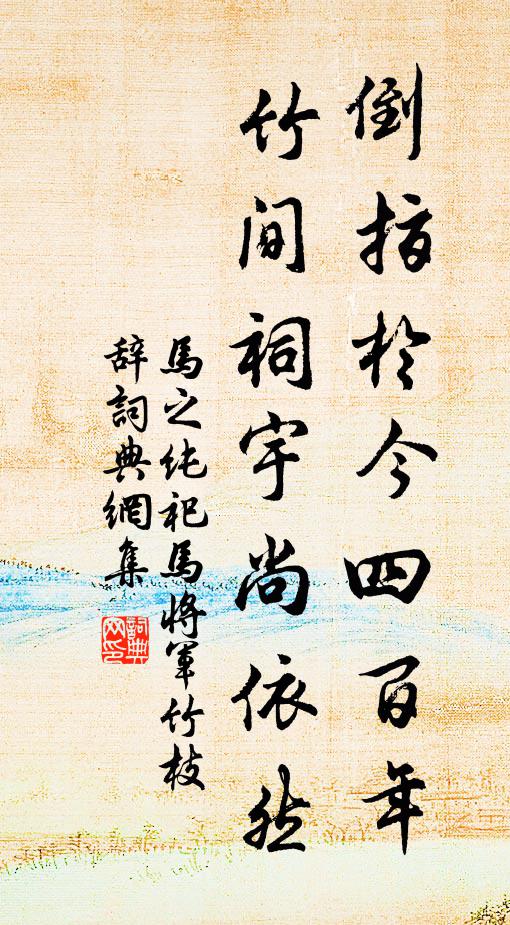 倒指於今四百年
竹間祠宇尚依然
馬之純祀馬將軍竹枝
辭詞典網集
詞典
网印